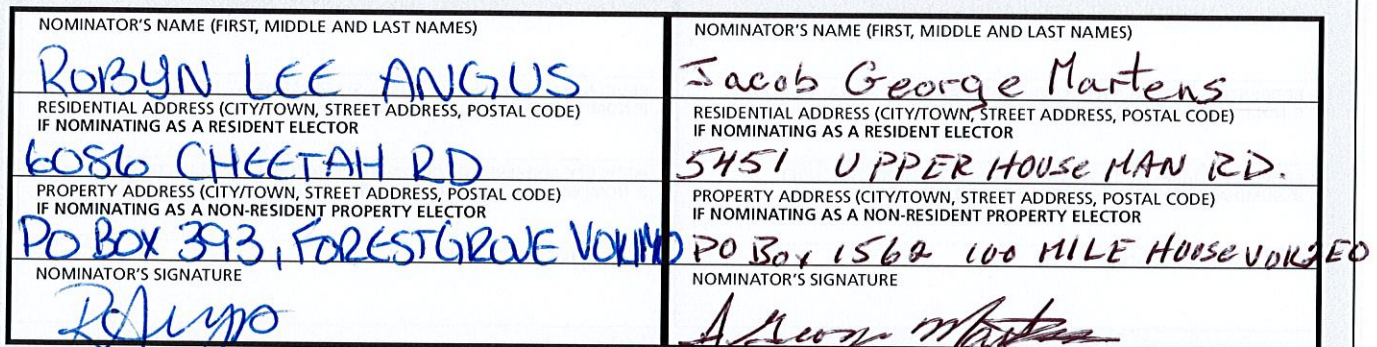 NOMINATOR'S NAME (FIRST, MIDDLE AND LAST NAMES)
ROBYN LEE ANGUS
RESIDENTIAL ADDRESS (CITY/TOWN, STREET ADDRESS, POSTAL CODE)
IF NOMINATING AS A RESIDENT ELECTOR
6086 CHEETAH RD
PROPERTY ADDRESS (CITY/TOWN, STREET ADDRESS, POSTAL CODE)
IF NOMINATING AS A NON-RESIDENT PROPERTY ELECTOR
PO BOX 393, FORESTGROVE V0K1M0
NOMINATOR'S SIGNATURE
NOMINATOR'S NAME (FIRST, MIDDLE AND LAST NAMES)
Jacob George Martens
RESIDENTIAL ADDRESS (CITY/TOWN, STREET ADDRESS, POSTAL CODE)
IF NOMINATING AS A RESIDENT ELECTOR
5451 UPPER HOUSEMAN RD.
PROPERTY ADDRESS (CITY/TOWN, STREET ADDRESS, POSTAL CODE)
IF NOMINATING AS A NON-RESIDENT PROPERTY ELECTOR
PO Box 1562 100 MILE HOUSE V0K2E0
NOMINATOR'S SIGNATURE